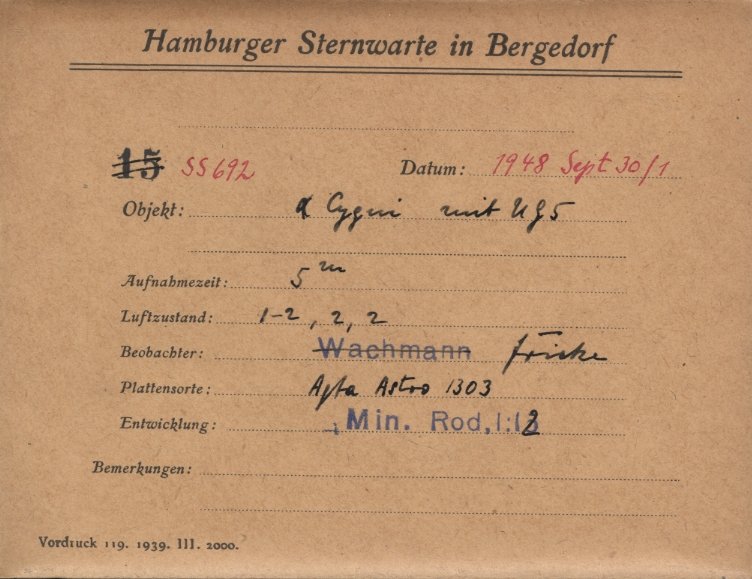 Hamburger Sternwarte in Bergedorf
15 SS692 Datum: 1948 Sept 30/1
Objekt: α Cygni mit UG5
Aufnahmezeit: 5 m
Luftzustand: 1-2, 2, 2
Beobachter: Wachmann Fricke
Plattensorte: Agfa Astro 1303
Entwicklung: Min. Rod, 1:
Bemerkungen:
Vordruck 119. 1939. III. 2000.